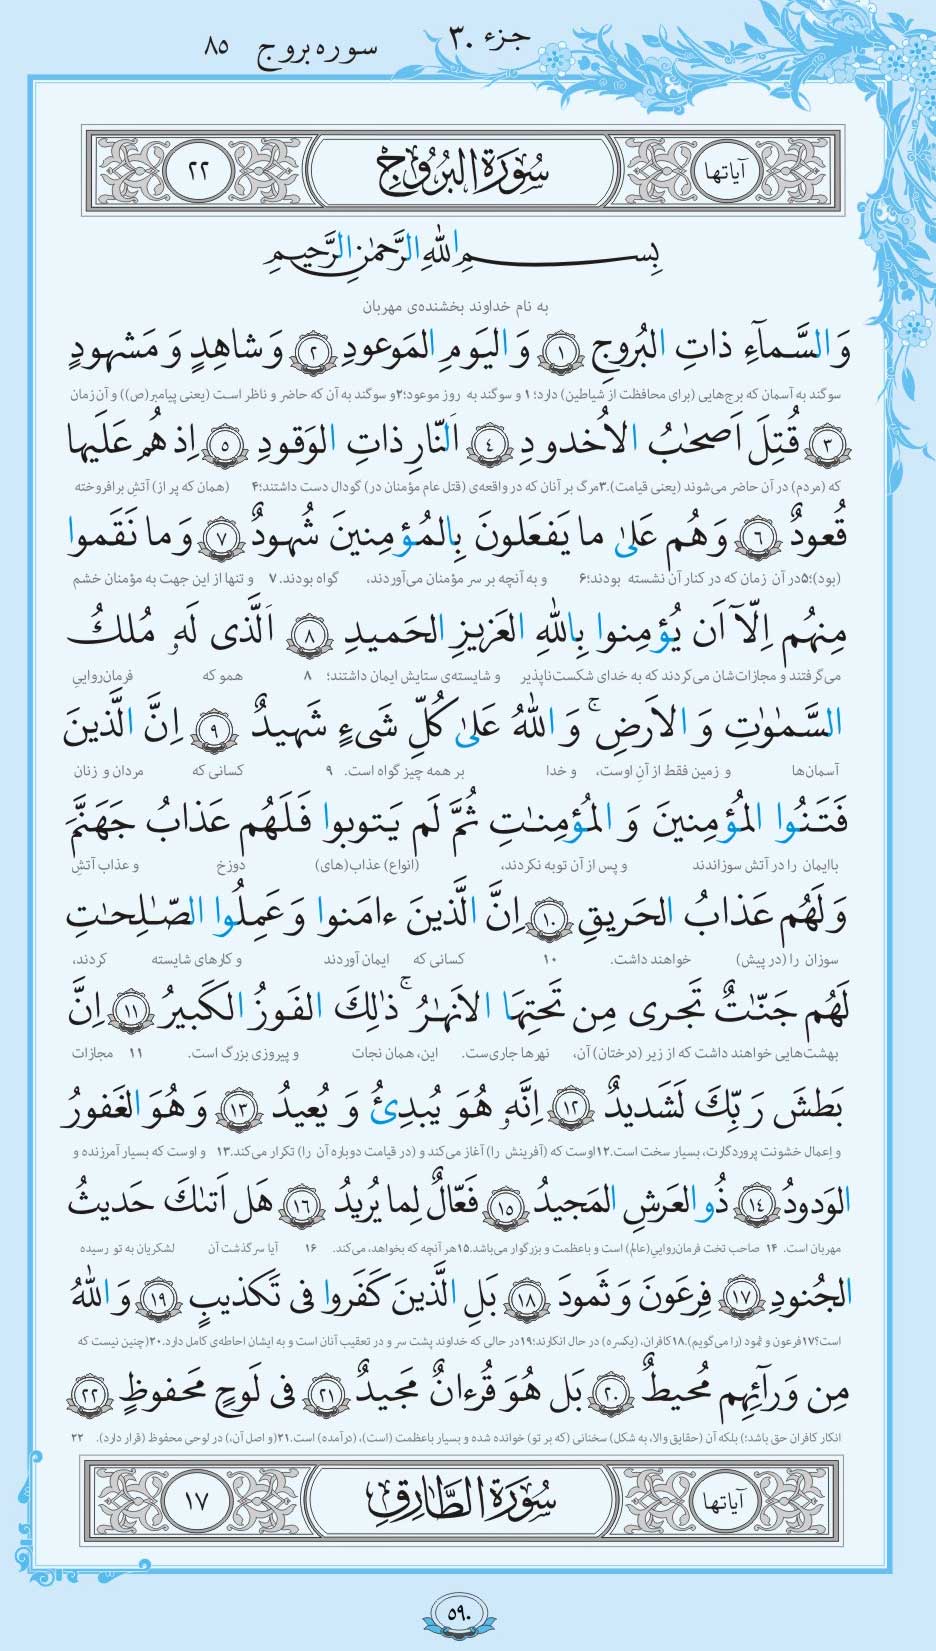 جزء ۳۰
سوره بروج ۸۵
آیاتها سُورَةُ البُرُوجِ ۲۲
بِسمِ اللهِ الرَّحمٰنِ الرَّحيمِ
به نام خداوند بخشنده‌ی مهربان
وَ السَّماۤءِ ذاتِ البُروجِ ۱ وَ اليَومِ المَوعودِ ۲ وَ شاهِدٍ وَ مَشهودٍ
سوگند به آسمان که برج‌هایی (برای محافظت از شیاطین) دارد؛ ۱ و سوگند به روز موعود؛۲و سوگند به آن که حاضر و ناظر است (یعنی پیامبر(ص)) و آن زمان
۳ قُتِلَ اَصحٰبُ الاُخدودِ ۴ اَلنّارِ ذاتِ الوَقودِ ۵ اِذ هُم عَلَيها
که (مردم) در آن حاضر می‌شوند (یعنی قیامت).۳مرگ بر آنان که در واقعه‌ی (قتل عام مؤمنان در) گودال دست داشتند؛۴ (همان که پر از) آتشِ برافروخته
قُعودٌ ۶ وَ هُم عَلىٰ ما يَفعَلونَ بِالمُؤمِنينَ شُهودٌ ۷ وَ ما نَقَموا
(بود)؛۵در آن زمان که در کنار آن نشسته بودند؛۶ و به آنچه بر سر مؤمنان می‌آوردند، گواه بودند. ۷ و تنها از این جهت به مؤمنان خشم
مِنهُم اِلّاۤ اَن يُؤمِنوا بِاللهِ العَزيزِ الحَميدِ ۸ اَلَّذى لَهٗ مُلكُ
می‌گرفتند و مجازات‌شان می‌کردند که به خدای شکست‌ناپذیر و شایسته‌ی ستایش ایمان داشتند؛ ۸ همو که فرمان‌رواییِ
السَّمٰوٰتِ وَ الاَرضِ ۚ وَ اللهُ عَلىٰ كُلِّ شَىءٍ شَهيدٌ ۹ اِنَّ الَّذينَ
آسمان‌ها و زمین فقط از آنِ اوست، و خدا بر همه چیز گواه است. ۹ کسانی که مردان و زنان
فَتَنُوا المُؤمِنينَ وَ المُؤمِنٰتِ ثُمَّ لَم يَتوبوا فَلَهُم عَذابُ جَهَنَّمَ
باایمان را در آتش سوزاندند و پس از آن توبه نکردند، (انواع) عذاب(های) دوزخ و عذاب آتشِ
وَ لَهُم عَذابُ الحَريقِ ۱۰ اِنَّ الَّذينَ ءامَنوا وَ عَمِلُوا الصّٰلِحٰتِ
سوزان را (در پیش) خواهند داشت. ۱۰ کسانی که ایمان آوردند و کارهای شایسته کردند،
لَهُم جَنّٰتٌ تَجرى مِن تَحتِهَا الاَنهٰرُ ۚ ذٰلِكَ الفَوزُ الكَبيرُ ۱۱ اِنَّ
بهشت‌هایی خواهند داشت که از زیر (درختان) آن، نهرها جاری‌ست. این، همان نجات و پیروزی بزرگ است. ۱۱ مجازات
بَطشَ رَبِّكَ لَشَديدٌ ۱۲ اِنَّهٗ هُوَ يُبدِئُ وَ يُعيدُ ۱۳ وَ هُوَ الغَفورُ
و اِعمال خشونت پروردگارت، بسیار سخت است.۱۲اوست که (آفرینش را) آغاز می‌کند و (در قیامت دوباره آن را) تکرار می‌کند.۱۳ و اوست که بسیار آمرزنده و
الوَدودُ ۱۴ ذُو العَرشِ المَجيدُ ۱۵ فَعّالٌ لِما يُريدُ ۱۶ هَل اَتىٰكَ حَديثُ
مهربان است. ۱۴ صاحب تخت فرمان‌رواییِ(عالم) است و باعظمت و بزرگوار می‌باشد.۱۵هر آنچه که بخواهد، می‌کند. ۱۶ آیا سرگذشت آن لشکریان به تو رسیده
الجُنودِ ۱۷ فِرعَونَ وَ ثَمودَ ۱۸ بَلِ الَّذينَ كَفَروا فى تَكذيبٍ ۱۹ وَ اللهُ
است؟۱۷فرعون و ثمود (را می‌گویم).۱۸کافران، (یکسره) در حال انکارند؛۱۹در حالی که خداوند پشت سر و در تعقیب آنان است و به ایشان احاطه‌ی کامل دارد.۲۰(چنین نیست که
مِن وَرآئِهِم مُحيطٌ ۲۰ بَل هُوَ قُرءانٌ مَجيدٌ ۲۱ فى لَوحٍ مَحفوظٍ ۲۲
انکار کافران حق باشد؛) بلکه آن (حقایق والا، به شکل) سخنانی (که بر تو) خوانده شده و بسیار باعظمت (است)، (درآمده) است.۲۱(و اصل آن،) در لوحی محفوظ (قرار دارد). ۲۲
آیاتها سُورَةُ الطَّارِقِ ۱۷
۵۹۰